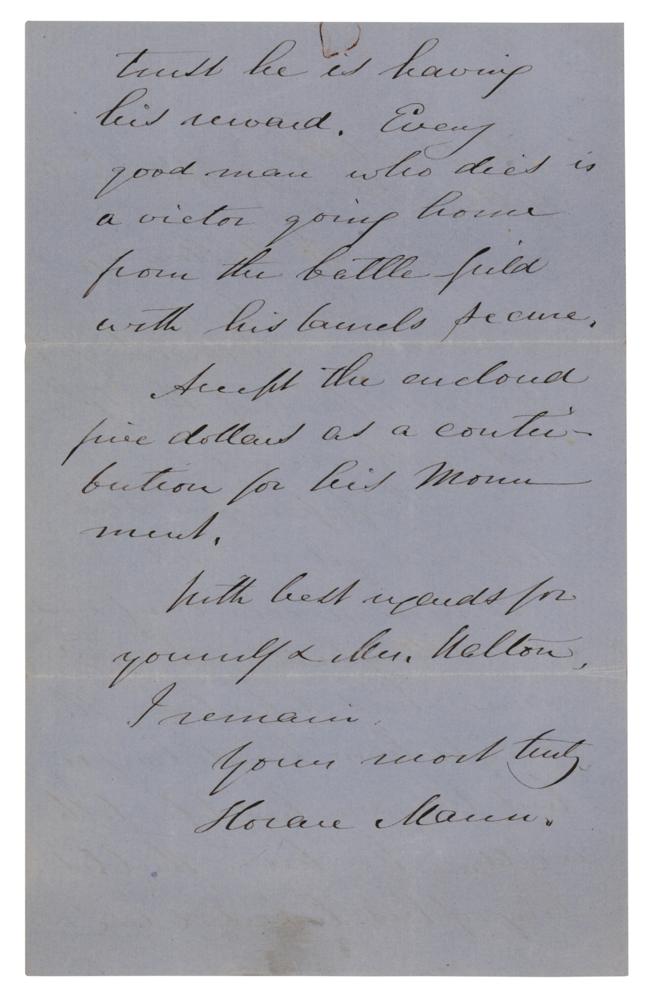 trust he is having
his reward. Every
good man who dies is
a victor going home
from the battle field
with his laurels secure.
Accept the enclosed
five dollars as a contri-
bution for his Monu
ment.
With best regards for
yourself & Mrs. Walton,
I remain
Yours most truly
Horace Mann.